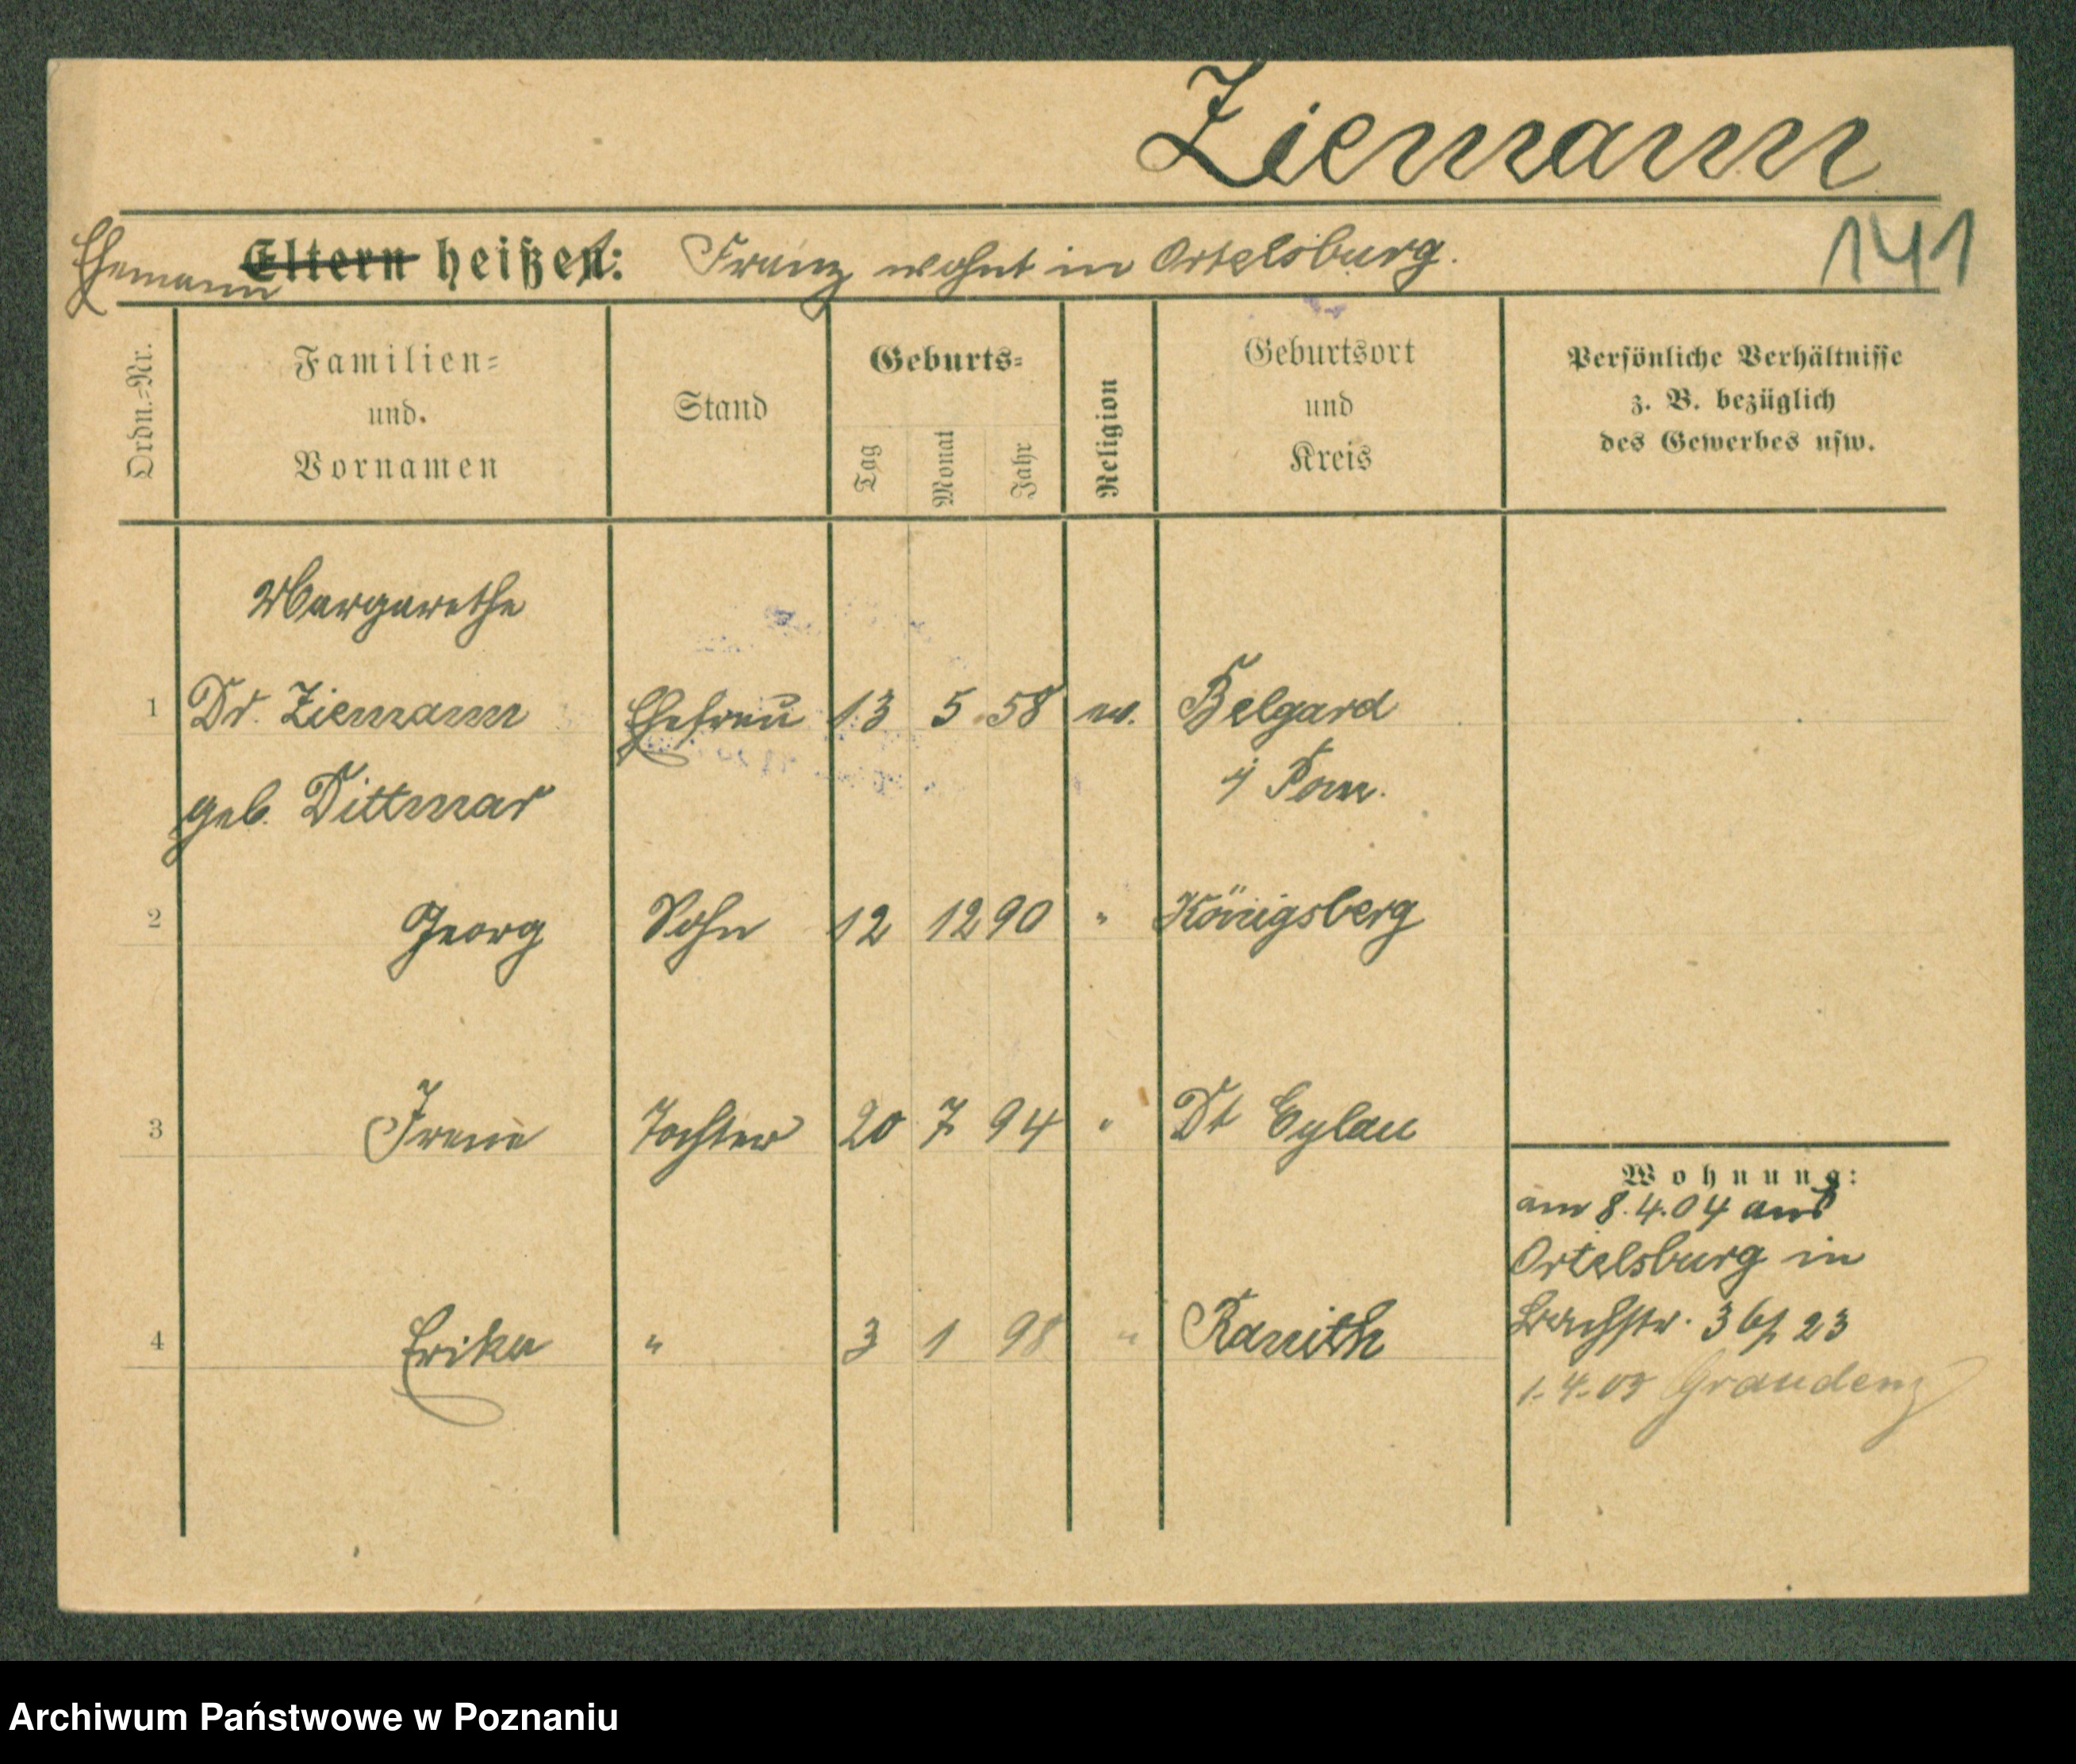 Ziemann
Ehemann Eltern heißen: Franz wohnt in Ortelsburg.
141
Ordn.-Nr.
Familien-
und
Vornamen
Stand
Geburts-
Tag
Monat
Jahr
Religion
Geburtsort
und
Kreis
Persönliche Verhältnisse
z. B. bezüglich
des Gewerbes usw.
Margarethe
1 Dr. Ziemann Ehefrau 13 5 58 ev. Belgard
geb. Dittmar i/ Pom.
2 Georg Sohn 12 12 90 " Königsberg
3 Irene Tochter 20 7 94 " Dt Eylau
4 Erika " 3 1 98 "
Wohnung:
am 8.4.04 aus
Ortelsburg in
Bachstr. 36 23
Graudenz
Archiwum Państwowe w Poznaniu